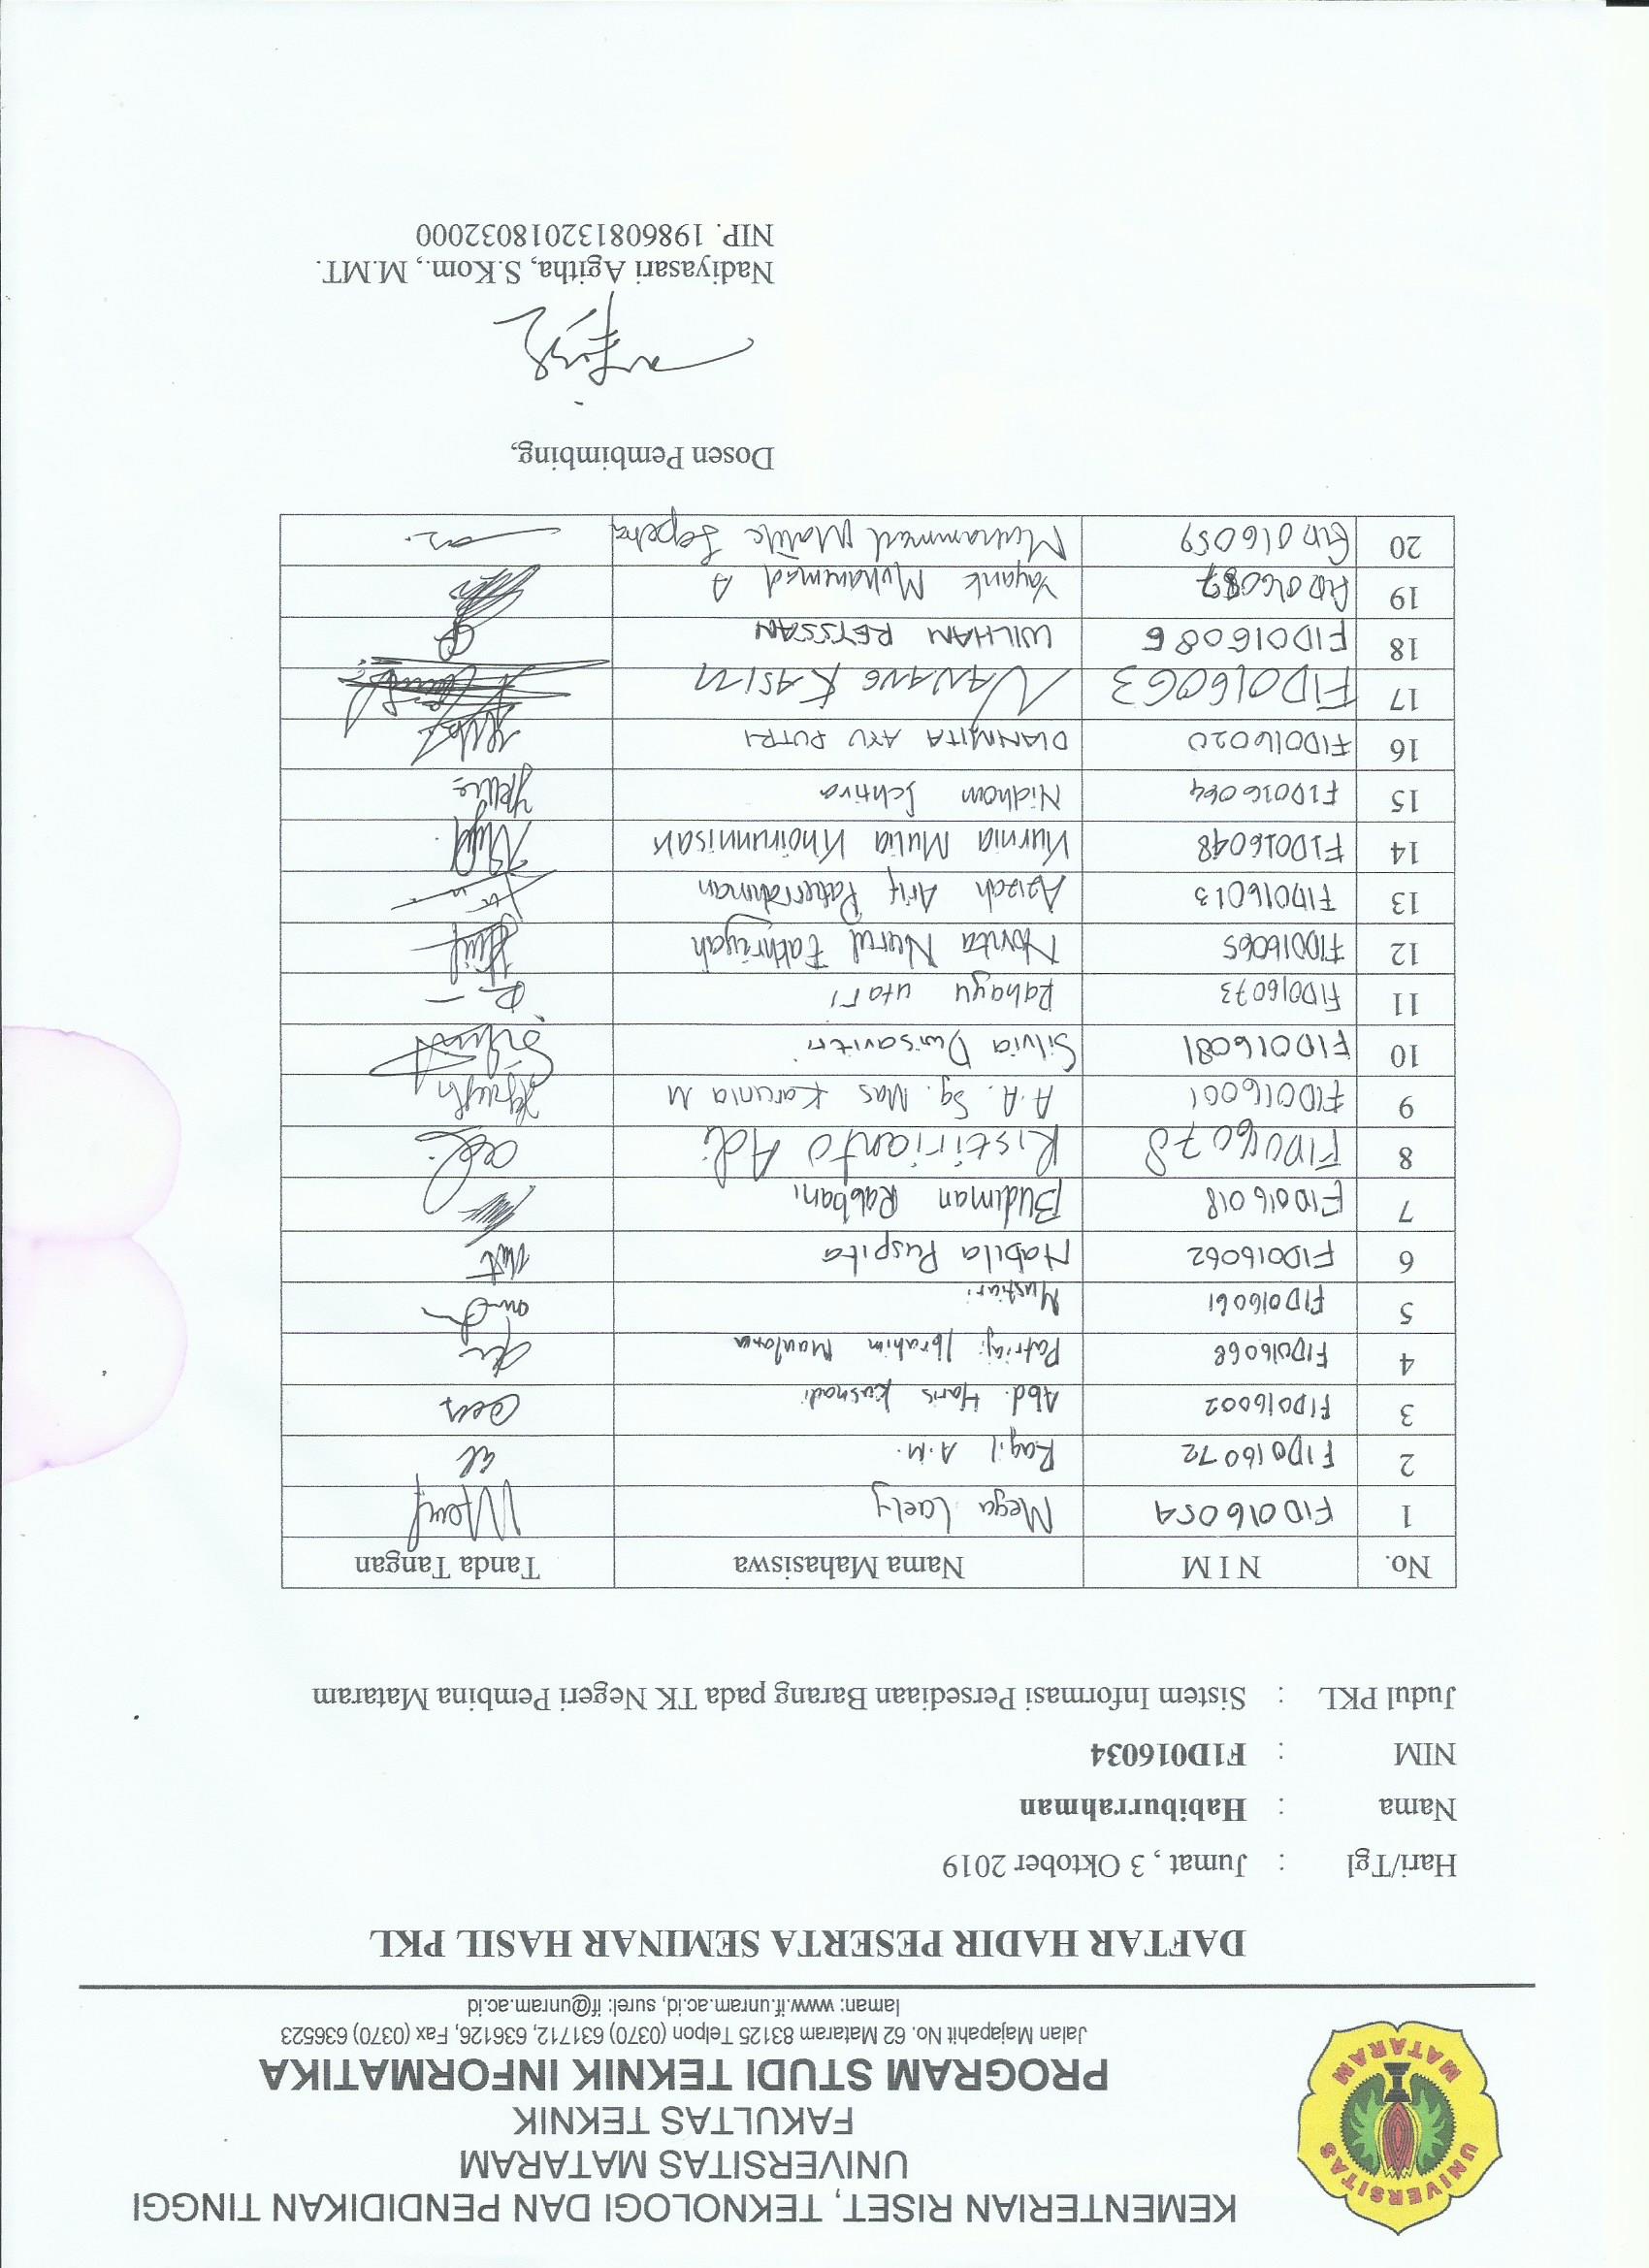 KEMENTERIAN RISET, TEKNOLOGI DAN PENDIDIKAN TINGGI
UNIVERSITAS MATARAM
FAKULTAS TEKNIK
PROGRAM STUDI TEKNIK INFORMATIKA
Jalan Majapahit No. 62 Mataram 83125 Telpon (0370) 631712, 636126, Fax (0370) 636523
laman: www.if.unram.ac.id, surel: if@unram.ac.id
UNIVERSITAS MATARAM
DAFTAR HADIR PESERTA SEMINAR HASIL PKL
Hari/Tgl : Jumat , 3 Oktober 2019
Nama : Habiburrahman
NIM : F1D016034
Judul PKL : Sistem Informasi Persediaan Barang pada TK Negeri Pembina Mataram
No. NIM Nama Mahasiswa Tanda Tangan
1 Mega Laely
2 F1D016072 Ragil A.M.
3 F1D016002 Abd. Haris Kusnadi
4 F1D016068 Ibrahim Maulana
5 F1D016061 Mustiari
6 F1D016062 Nabila Puspita
7 F1D016018 Budiman Rabbani
8 F1D016078 Ristirianto Adi
9 F1D016001 A.A. Sg. Mas Karunia M
10 F1D016081 Silvia Dwisavitri
11 F1D016073 Rahayu utari
12 F1D016065 Novita Nurul Fathriyah
13 F1D016013 Azizah Arif
14 F1D016048 Kurnia Mulia Khoirunnisak
15 F1D016064 Nidhom
16 F1D016020 DIANNITA AYU PUTRI
17 F1D016063 NANANG KASIM
18 F1D016086 WILHAN REYSSAN
19 Yayank Muhammad A
20 F1D016059 Muhammad Malik
Dosen Pembimbing,
Nadiyasari Agitha, S.Kom., M.MT.
NIP. 198608132018032000